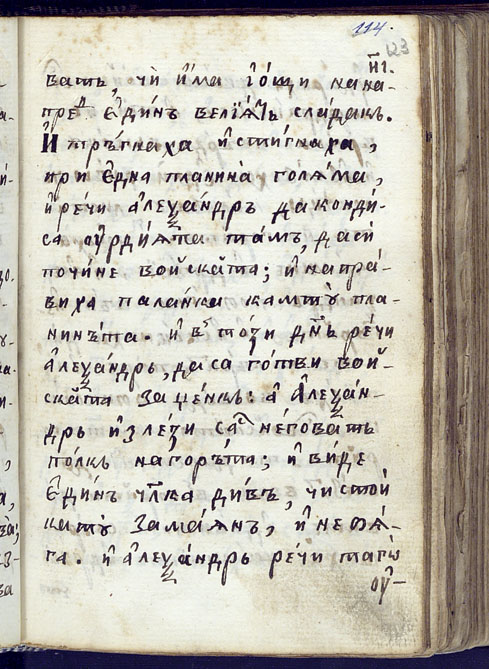 114.
123
н҃і.
ватъ, чи и҆́ма і҆о́щи мана-
пре́д є҆ди́нъ вели́ѧтъ сла́дакъ.
И҆ тръ́гнаха и҆ сти́гнаха,
при є҆дна планина̀ голѧ́ма,
и҆ ре́чи а҆леѯа́ндръ да конди́-
са ѹ҆рди́ѧта та́мъ, да си
почи́не во́йската; и҆ напра́-
виха пала́нка камту̀ пла-
нинъ́та. и҆ въ то́зи днь ре́чи
а҆леѯа́ндръ, да са го́тви вой-
ска́та за це́нкъ: а҆ а҆леѯа́н-
дръ и҆зле́зи са́с не́говатъ
по́лкъ на горъ́та; и҆ ви́де
є҆ди́нъ чл҃ка ди́въ, чи стои́
кату̀ зама́ѧнъ, и҆ не бѧ́-
га. и҆ а҆леѯа́ндръ ре́чи тагѡ̀
ѹ҆-